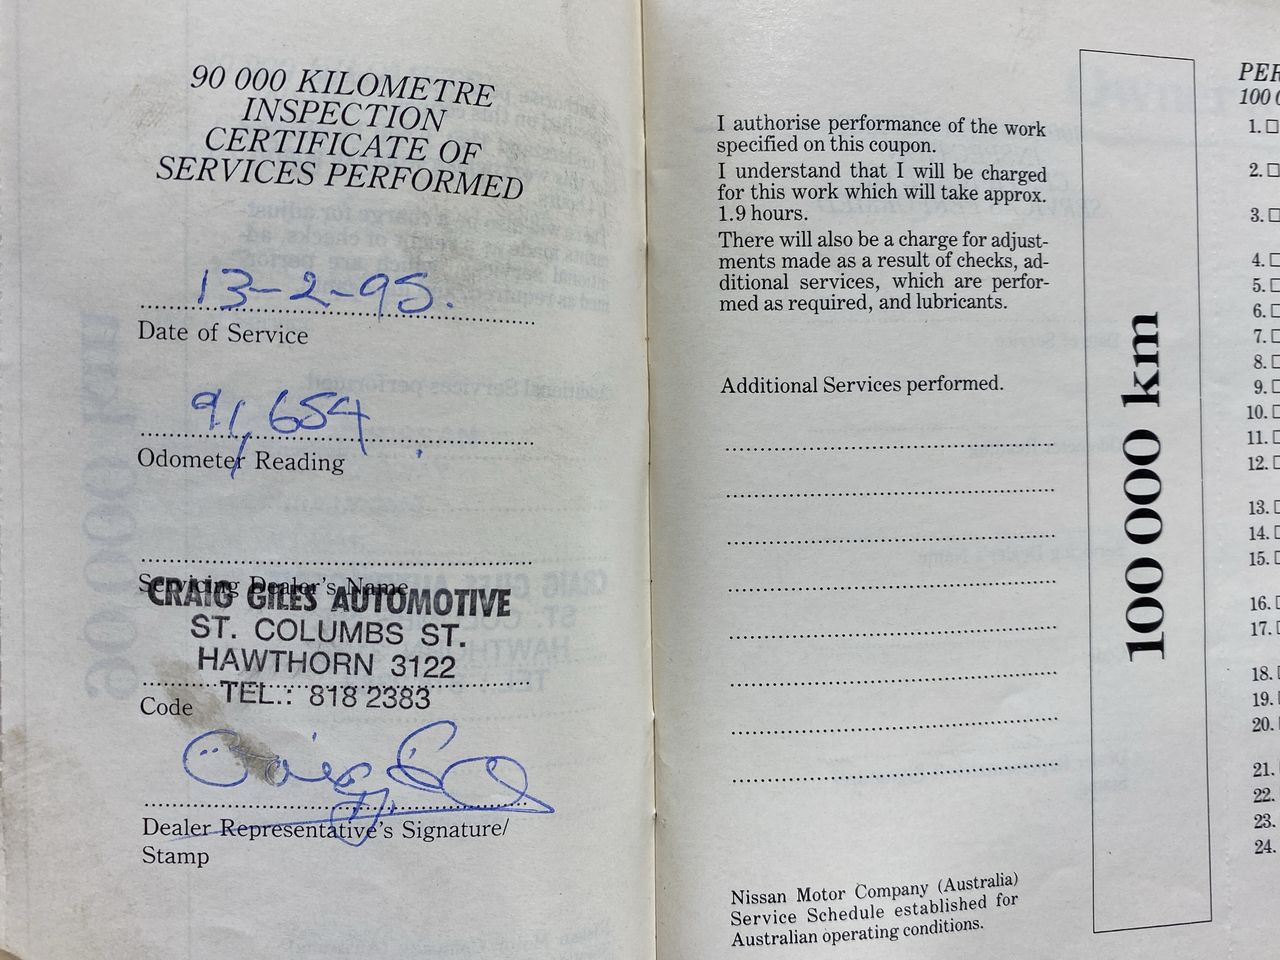 90 000 KILOMETRE
INSPECTION
CERTIFICATE OF
SERVICES PERFORMED
13-2-95.
Date of Service
91,654
Odometer Reading
Servicing Dealer's Name
CRAIG GILES AUTOMOTIVE
ST. COLUMBS ST.
HAWTHORN 3122
TEL.: 818 2383
Code
Dealer Representative's Signature/
Stamp
I authorise performance of the work
specified on this coupon.
I understand that I will be charged
for this work which will take approx.
1.9 hours.
There will also be a charge for adjust-
ments made as a result of checks, ad-
ditional services, which are perfor-
med as required, and lubricants.
Additional Services performed.
Nissan Motor Company (Australia)
Service Schedule established for
Australian operating conditions.
100 000 km
PER
100 0
1.
2.
3.
4.
5.
6.
7.
8.
9.
10.
11.
12.
13.
14.
15.
16.
17.
18.
19.
20.
21.
22.
23.
24.